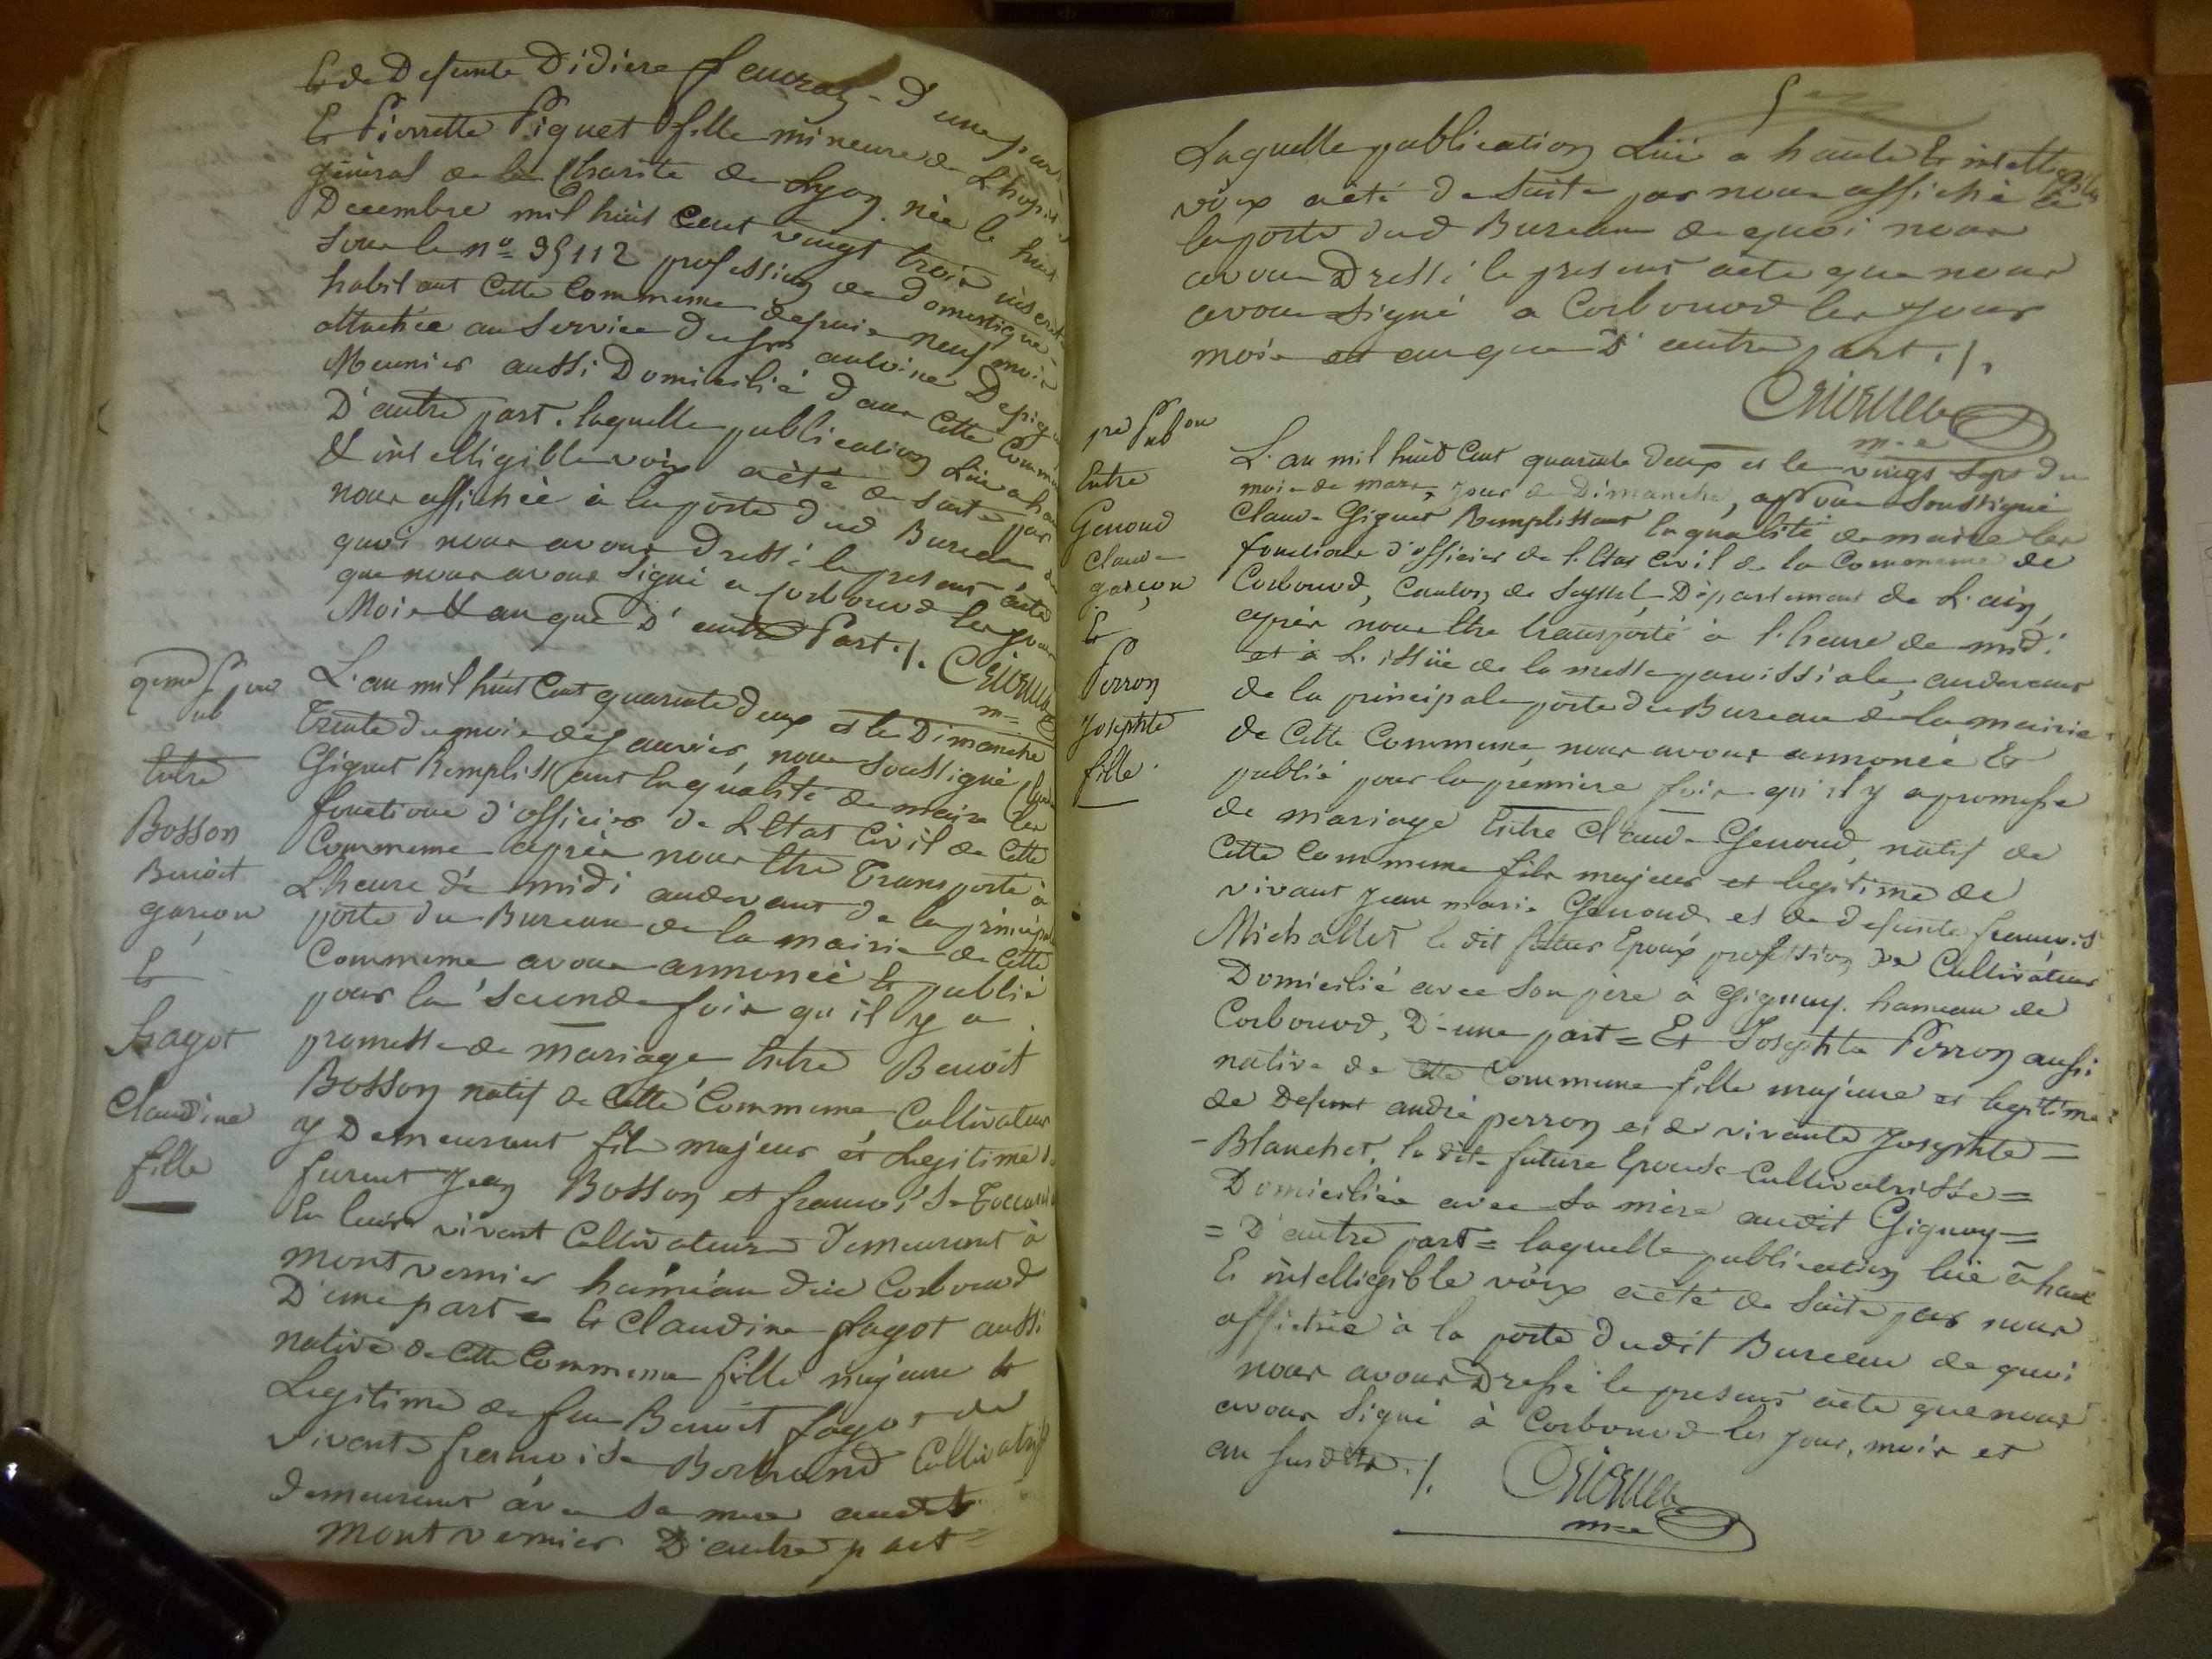 Et de Defunte Didiere - D'une part
Et Pierrette Piguet fille mineure de L'hopital
général de la Charité de Lyon. née le huit
Decembre mil huit Cent vingt trois inscrite
Sous le nº 35112 profession de domestique
habitant Cette Commune depuis neuf mois
attachée au Service du sr antoine
Meunier aussi Domicilié dans Cette Commune
D'autre part. laquelle publication Lüe a haute
Et intelligible voix aèté de Suite par
nous affichèe à la porte dud Bureau de
quoi nous avons dressé le present acte
que nous avons Signé a Corbonod les jour
Mois Et an que D'autre Part ./.
2eme Pub
Entre
Bosson
Benoit
garçon
Et
fagot
Claudine
fille
L'an mil huit Cent quarante deux et le Dimanche
Trente du mois de Janvier, nous Soussigné Claude
Gignet Remplissant la qualité de maire les
fonctions d'officier de L'Etat Civil de Cette
Commune après nous Etre Transporté à
L'heure de midi audevant de la principale
porte du Bureau de la mairie de Cette
Commune avons annoncé Et publié
pour la Seconde fois qu'il y a
promesse de mariage Entre Benoit
Bosson natif de Cette Commune Cultivateur
y Demeurant fils majeur et Legitime de
furent Jean Bosson et francoise
En leurs vivent Cultivateurs demeurant à
montvernier haméau de Corbonod
D'une part = Et Claudine fagot aussi
native de Cette Commune fille majeure Et
Legitime de feu Benoit fagot de
vivante francoise Bertrand Cultivatrice
demeurant avec sa mere audit
montvernier D'autre part =
Laquelle publication Lüe a haute Et intelligible
voix aèté de Suite par nous affiché à
la porte dud Bureau de quoi nous
avons Dressé le present acte que nous
avons signé a Corbonod les jour
mois et an que D'autre part ./.
m-e
pre Pubon
Entre
Genoud
Claude
garçon
Et
Perron
Josephte
fille
L'an mil huit Cent quarante deux et le vingt Sept du
mois de mars, jour de Dimanche, nous Soussigné
Claude Gignet Remplissant la qualité de maire les
fonctions d'officier de l'Etat Civil de la Commune de
Corbonod, Canton de Seyssel, Département de L'ain,
après nous Etre transporté à l'heure de midi
et à L'issüe de la messe paroissiale, audevant
de la principale porte du Bureau de la mairie
de Cette Commune, nous avons annoncé Et
publié pour la premiere fois qu'il y a promesse
de mariage Entre Claude Genoud natif de
Cette Commune fils majeur et legitime de
vivant Jean marie Genoud et de defunte francoise
Michallet le dit futur Epoux profession de Cultivateur
Domicilié avec Son père à Gignay. hameau de
Corbonod, D'une part = Et Josephte Perron aussi
native de Cette Commune fille majeure et legitime
de Defunt andré perron et de vivante Josephte =
- Blanchet, la dite future Epouse Cultivatrisse =
Domiciliée avec sa mère audit Gignay =
= D'autre part = laquelle publication lüe à haute
Et intelligible voix aèté de Suite par nous
affichée à la porte dudit Bureau de quoi
nous avons Dressé le present acte que nous
avons Signé à Corbonod les jour, mois et
an susdits. /.
m-e